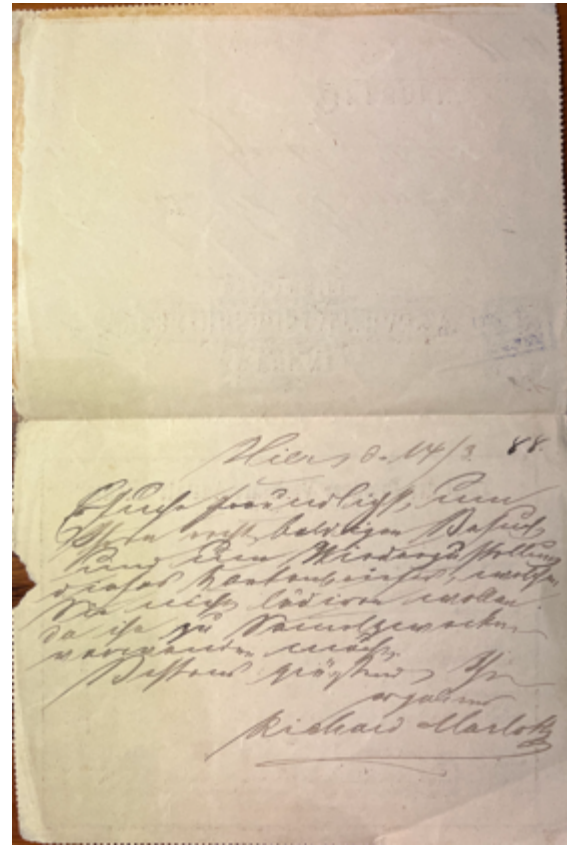 Wien, d. 14/3. 88.
Ersuche freundlichst, um
Ihren recht baldigen Besuch,
und um Wiederzustellung
dieses Kartenbriefes, welchen
Sie nicht lädiren wollen
da ihn zu Sammelzwecken
verwenden möchte.
Bestens grüßend, Ihr
ergebener
Richard Marlott